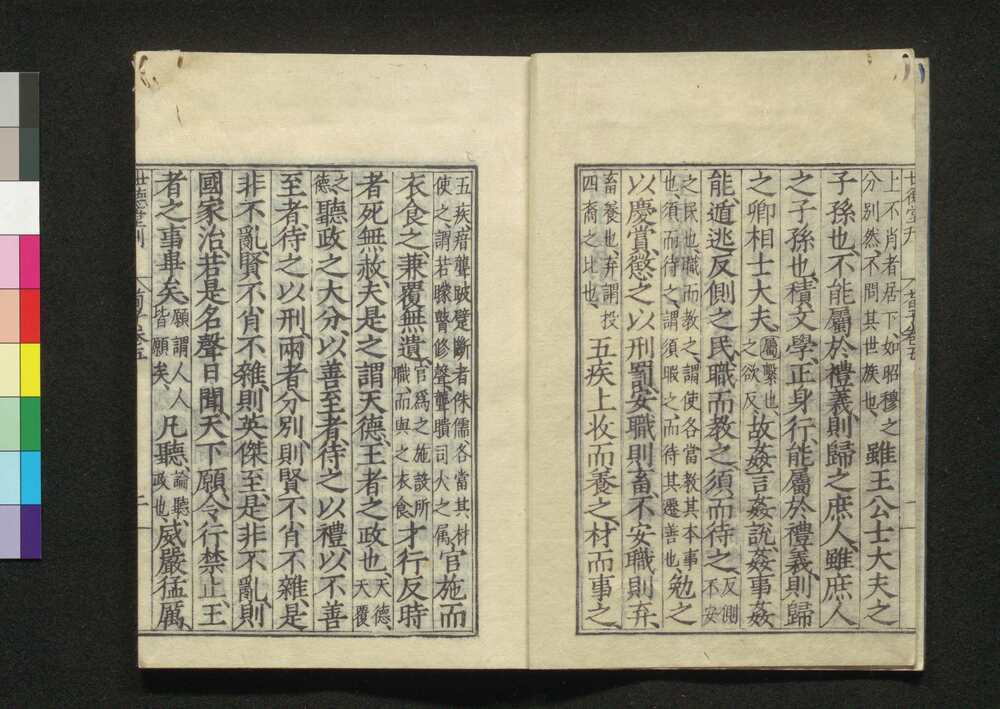 上不肖者居下如昭穆之
分別然、不問其世族也、
雖王公士大夫之
子孫也、不能屬於禮義、則歸之庶人、雖庶人
之子孫也、積文學、正身行、能屬於禮義、則歸
之卿相士大夫、
屬繫也、
之欲反
故姦言姦說、姦事姦
能、遁逃反側之民、職而教之、須而待之、
反側
不安
之民也、職而教之、謂使各當教其本事
也、須而待之、謂須暇之、而待其遷善也、
勉之
以慶賞、懲之以刑罰、安職則畜、不安職則弃、
畜養也、弃謂投
四裔之比也、
五疾上收而養之、材而事之、
五疾瘖聾跛躄斷者侏儒各當其材
使之、謂若矇瞽修聲、聾聵司火之屬
官施而
衣食之、兼覆無遺、
官爲之施設所
職、而與之衣食
才行反時
者死無赦、夫是之謂天德、王者之政也、
天德、
天覆
之
德
聽政之大分、以善至者、待之以禮、以不善
至者待之以刑、兩者分別、則賢不肖不雜、是
非不亂、賢不肖不雜、則英傑至、是非不亂、則
國家治、若是名聲日聞、天下願、令行禁止、王
者之事畢矣、
願謂人人
皆願矣、
凡聽、
論聽
政也、
威嚴猛厲、